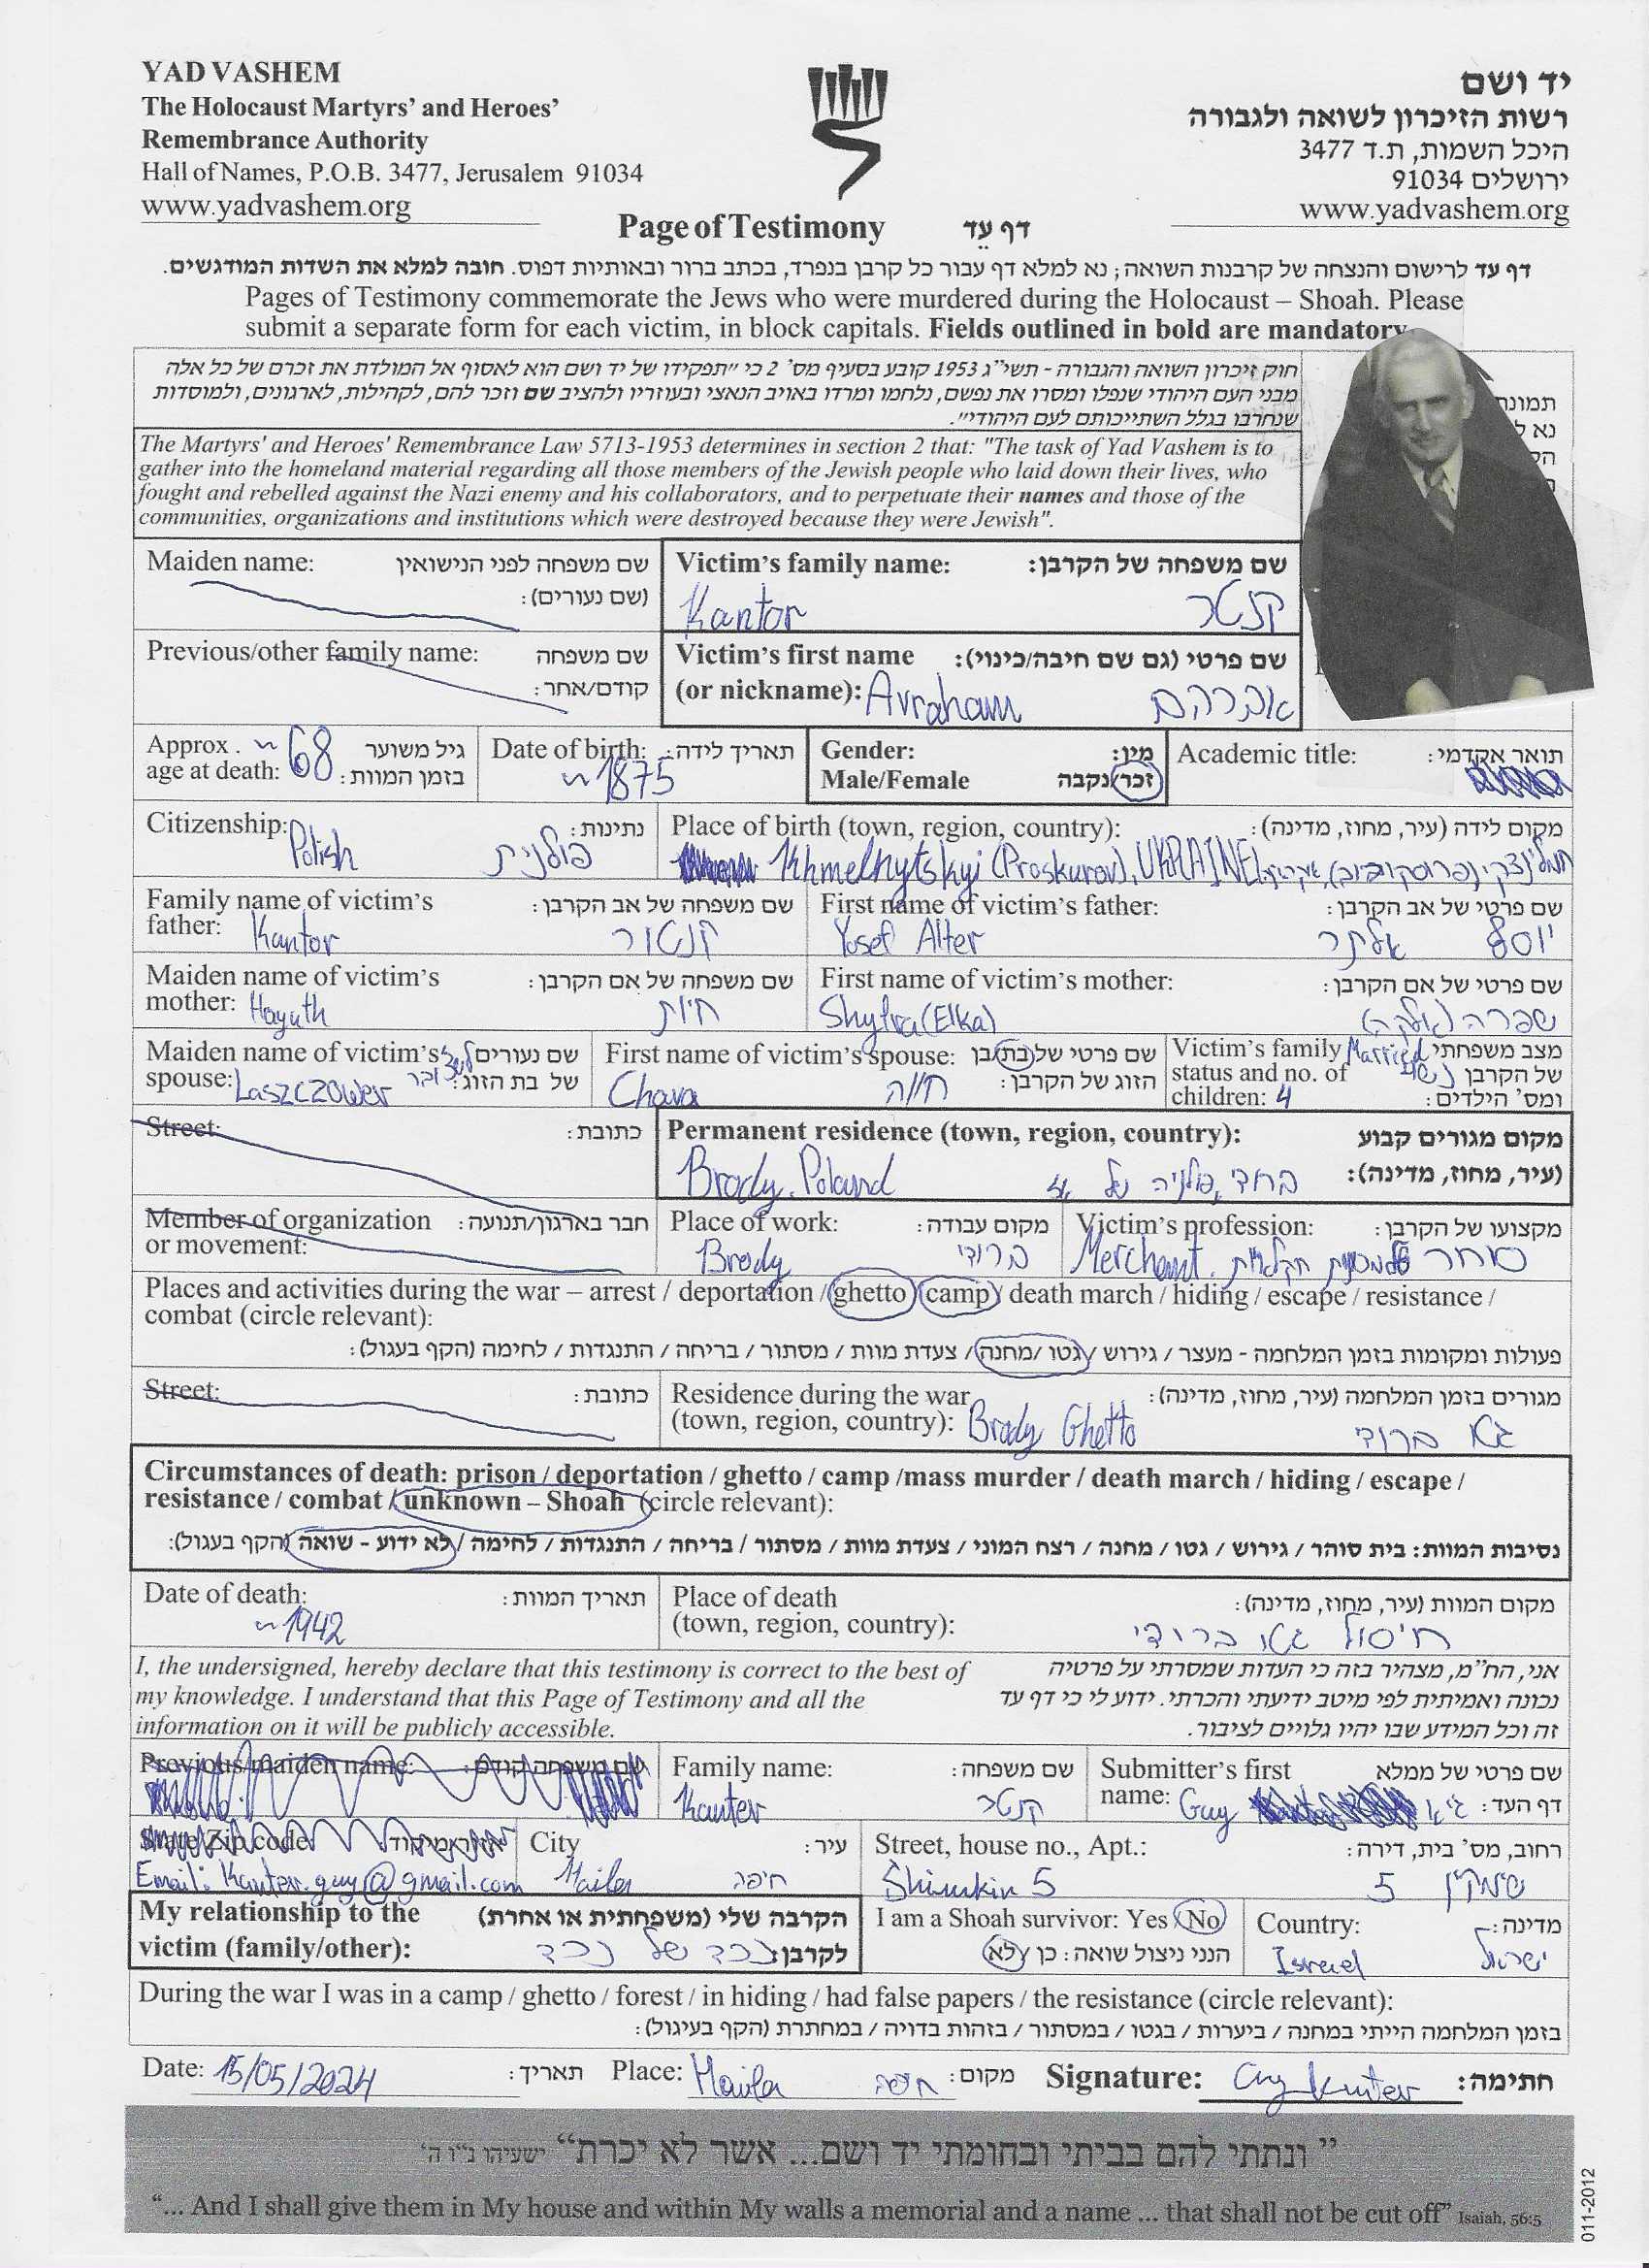 YAD VASHEM
The Holocaust Martyrs' and Heroes'
Remembrance Authority
Hall of Names, P.O.B. 3477, Jerusalem 91034
www.yadvashem.org
יד ושם
רשות הזיכרון לשואה ולגבורה
היכל השמות, ת.ד 3477
ירושלים 91034
www.yadvashem.org
Page of Testimony דף עֵד
דף עד לרישום והנצחה של קרבנות השואה; נא למלא דף עבור כל קרבן בנפרד, בכתב ברור ובאותיות דפוס. חובה למלא את השדות המודגשים.
Pages of Testimony commemorate the Jews who were murdered during the Holocaust – Shoah. Please
submit a separate form for each victim, in block capitals. Fields outlined in bold are mandatory.
חוק זיכרון השואה והגבורה - תשי"ג 1953 קובע בסעיף מס' 2 כי "תפקידו של יד ושם הוא לאסוף אל המולדת את זכרם של כל אלה
מבני העם היהודי שנפלו ומסרו את נפשם, נלחמו ומרדו באויב הנאצי ובעוזריו ולהציב שם וזכר להם, לקהילות, לארגונים, ולמוסדות
שנחרבו בגלל השתייכותם לעם היהודי".
תמונת
נא ל
The Martyrs' and Heroes' Remembrance Law 5713-1953 determines in section 2 that: "The task of Yad Vashem is to
gather into the homeland material regarding all those members of the Jewish people who laid down their lives, who
fought and rebelled against the Nazi enemy and his collaborators, and to perpetuate their names and those of the
communities, organizations and institutions which were destroyed because they were Jewish".
Maiden name: שם משפחה לפני הנישואין
(שם נעורים):
Victim's family name: שם משפחה של הקרבן:
Kantor קנטר
Previous/other family name: שם משפחה
קודם/אחר:
Victim's first name שם פרטי (גם שם חיבה/כינוי):
(or nickname): Avraham אברהם
Approx. ~68 גיל משוער
age at death: בזמן המוות:
Date of birth: תאריך לידה:
~1875
Gender: מין:
Male/Female זכר/נקבה
Academic title: תואר אקדמי:
Citizenship: נתינות:
Polish פולנית
Place of birth (town, region, country): מקום לידה (עיר, מחוז, מדינה):
Khmelnytskyi (Proskurov), UKRAINE
Family name of victim's שם משפחה של אב הקרבן:
father: Kantor קנטור
First name of victim's father: שם פרטי של אב הקרבן:
Yosef Alter יוסף אלתר
Maiden name of victim's שם משפחה של אם הקרבן:
mother: Hayuth חיות
First name of victim's mother: שם פרטי של אם הקרבן:
(Elka) שפרה (אלקה)
Maiden name of victim's שם נעורים
spouse: Laszczower של בת הזוג:
First name of victim's spouse: שם פרטי של בת/בן
הזוג של הקרבן:
Chava חווה
Victim's family Married מצב משפחתי
status and no. of נשוי של הקרבן
children: 4 ומס' הילדים:
Street: כתובת:
Permanent residence (town, region, country): מקום מגורים קבוע
(עיר, מחוז, מדינה):
Brody, Poland ברודי, פולניה של אז
Member of organization חבר בארגון/תנועה:
or movement:
Place of work: מקום עבודה:
Brody ברודי
Victim's profession: מקצועו של הקרבן:
Merchant. סוחר
Places and activities during the war – arrest / deportation / ghetto / camp / death march / hiding / escape / resistance /
combat (circle relevant):
פעולות ומקומות בזמן המלחמה - מעצר / גירוש / גטו / מחנה / צעדת מוות / מסתור / בריחה / התנגדות / לחימה (הקף בעגול):
Street: כתובת:
Residence during the war מגורים בזמן המלחמה (עיר, מחוז, מדינה):
(town, region, country): Brody Ghetto גטו ברודי
Circumstances of death: prison / deportation / ghetto / camp /mass murder / death march / hiding / escape /
resistance / combat / unknown – Shoah (circle relevant):
נסיבות המוות: בית סוהר / גירוש / גטו / מחנה / רצח המוני / צעדת מוות / מסתור / בריחה / התנגדות / לחימה / לא ידוע - שואה (הקף בעגול):
Date of death: תאריך המוות:
~1942
Place of death מקום המוות (עיר, מחוז, מדינה):
(town, region, country): חיסול גטו ברודי
I, the undersigned, hereby declare that this testimony is correct to the best of
my knowledge. I understand that this Page of Testimony and all the
information on it will be publicly accessible.
אני, הח"מ, מצהיר בזה כי העדות שמסרתי על פרטיה
נכונה ואמיתית לפי מיטב ידיעתי והכרתי. ידוע לי כי דף עד
זה וכל המידע שבו יהיו גלויים לציבור.
Previous/maiden name: שם משפחה קודם:
Family name: שם משפחה:
Kanter קנטר
Submitter's first שם פרטי של ממלא
name: Guy גיא דף העד:
State/Zip code אזור/מיקוד
Email: Kanter.guy@gmail.com
City עיר:
Haifa חיפה
Street, house no., Apt.: רחוב, מס' בית, דירה:
Shimkin 5 שמקין 5
My relationship to the הקרבה שלי (משפחתית או אחרת)
victim (family/other): לקרבן: נכד של נכד
I am a Shoah survivor: Yes / No
הנני ניצול שואה: כן / לא
Country: מדינה:
Israel ישראל
During the war I was in a camp / ghetto / forest / in hiding / had false papers / the resistance (circle relevant):
בזמן המלחמה הייתי במחנה / ביערות / בגטו / במסתור / בזהות בדויה / במחתרת (הקף בעיגול):
Date: 15/05/2024 תאריך: Place: Haifa חיפה מקום: Signature: Guy Kanter חתימה:
"ונתתי להם בביתי ובחומתי יד ושם... אשר לא יכרת" ישעיהו נ"ו ה'
"... And I shall give them in My house and within My walls a memorial and a name ... that shall not be cut off" Isaiah, 56:5
011-2012